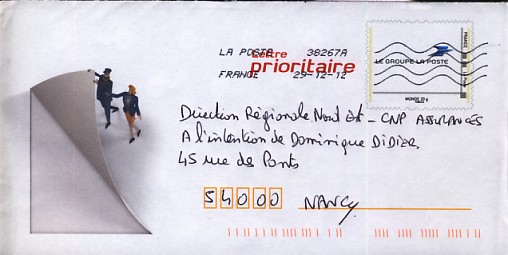 LA POSTE 38267A
Lettre
prioritaire
FRANCE 29-12-12
LE GROUPE LA POSTE
FRANCE
Direction Régionale Nord Est - CNP ASSURANCES
A l'intention de Dominique DIDIER
45 rue des Ponts
54000 NANCY